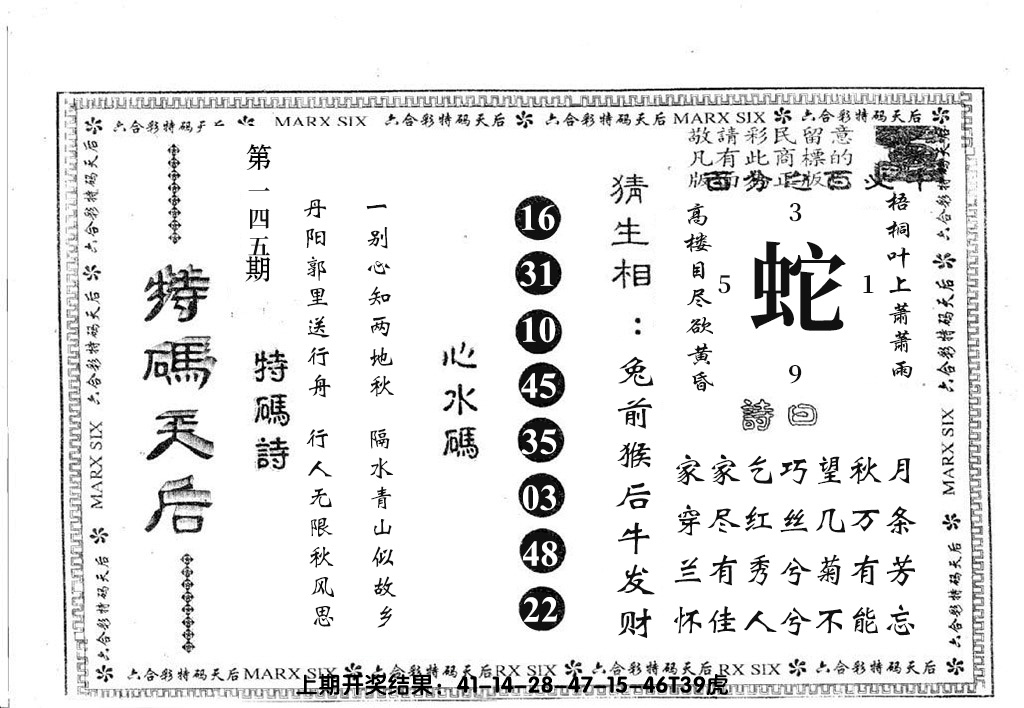 六合彩特码天后 MARX SIX 六合彩特码天后 六合彩特码天后 MARX SIX 六合彩特码天后
敬請彩民留意
凡有此商標的
版面為正版
梧桐叶上萧萧雨
高楼目尽欲黄昏
3
5
蛇
1
9
詩曰
家家乞巧望秋月
穿尽红丝几万条
兰有秀兮菊有芳
怀佳人兮不能忘
猜生相：兔前猴后牛发财
16
31
10
45
35
03
48
22
心水碼
一别心知两地秋 隔水青山似故乡
丹阳郭里送行舟 行人无限秋风思
特碼詩
第一四五期
特碼天后
六合彩特码天后 六合彩特码天后 MARX SIX 六合彩特码天后
六合彩特码天后 六合彩特码天后 MARX SIX 六合彩特码天后
六合彩特码天后 MARX SIX 六合彩特码天后 RX SIX 六合彩特码天后 RX SIX 六合彩特码天后
上期开奖结果：41-14-28-47-15-46T39虎